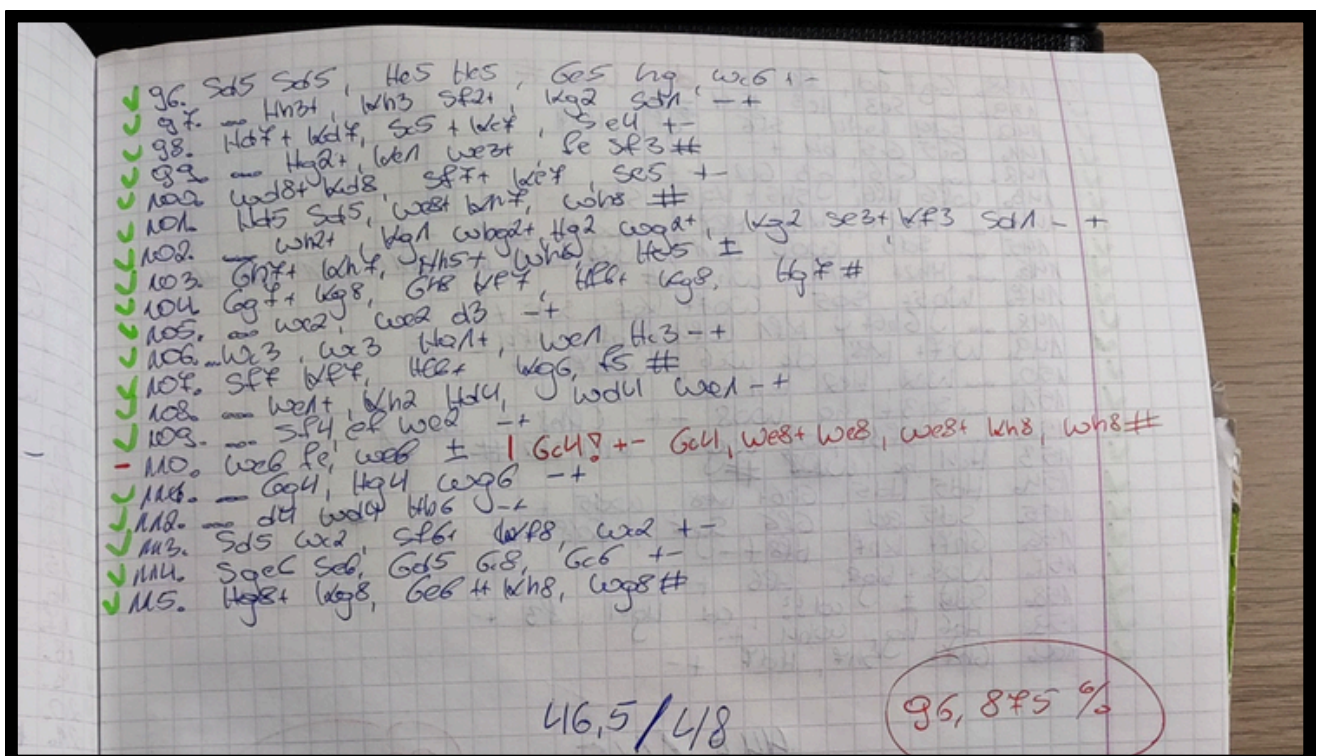 96. Sd5 Sd5, He5 He5, Ge5 hg, Wc6 +-
97. ... Hh3+, Kh3 Sf2+, Kg2 Sd1 -+
98. Hd7+ Kd7, Sc5+ Kc7, Se4 +-
99. ... Hg2+, We1 We3+ fe Sf3#
100. Wd8+ Kd8, Sf7+ Ke7, Se5 +-
101. Hd5 Sd5, We8+ Kh7, Wh8 #
102. ... Wh2+, Kg1 Wbg2+, Hg2 Wg2+, Kg2 Se3+, Kf3 Sd1 -+
103. Gh7+ Kh7, Hh5+ Wh6, He5 ±
104. Gg7+ Kg8, Gh8 Kf7, Hf6+ Kg8, Hg7#
105. ... Wc2, Wc2 d3 -+
106. ... Wc3, Wc3 Ha1+, We1 Hc3 -+
107. Sf7 Kf7, Hf6+ Kg6, f5 #
108. ... We1+, Kh2 Hd4, Wd4 We1 -+
109. ... Sf4, ef We2 -+
- 110. We6 fe, We6 ± | Gc4! +- Gc4, We8+ We8, We8+ Kh8, Wh8#
111. ... Gg4, Hg4 Wg6 -+
112. ... d4 Wd4 Hb6 -+
113. Sd5 Wc2, Sf6+ Kf8, Wc2 +-
114. Sge6 Se6, Gd5 Gc8, Gc6 +-
115. Hg8+ Kg8, Ge6+ Kh8, Wg8#
46,5/48
96,875 %